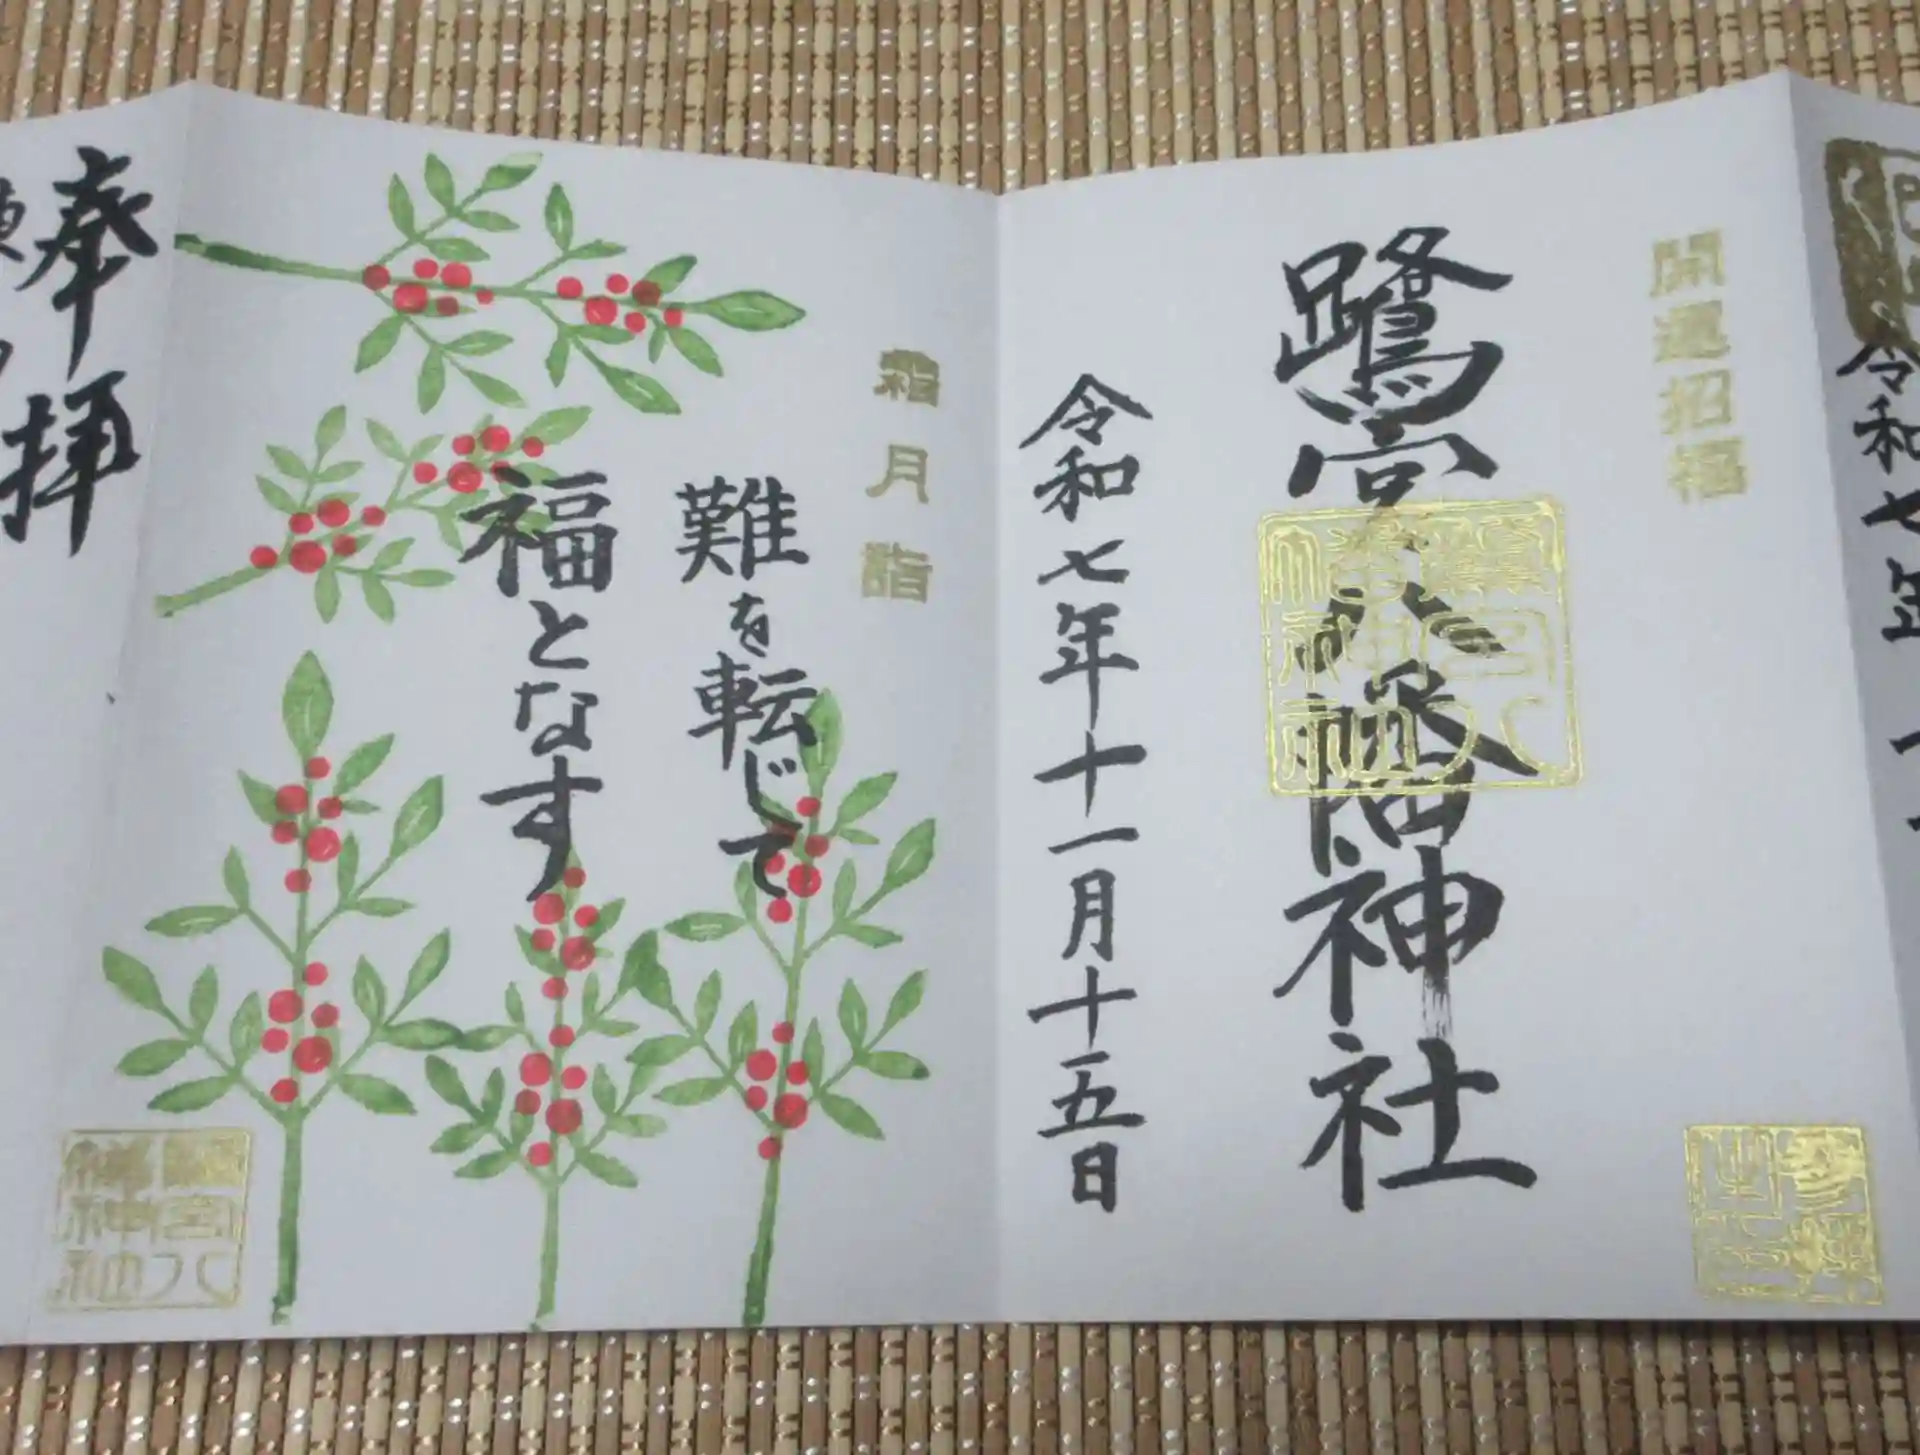 令和七年十一
開運招福
鷺宮八幡神社
令和七年十一月十五日
霜月詣
難を転じて
福となす
鷺宮八幡神社
奉拝